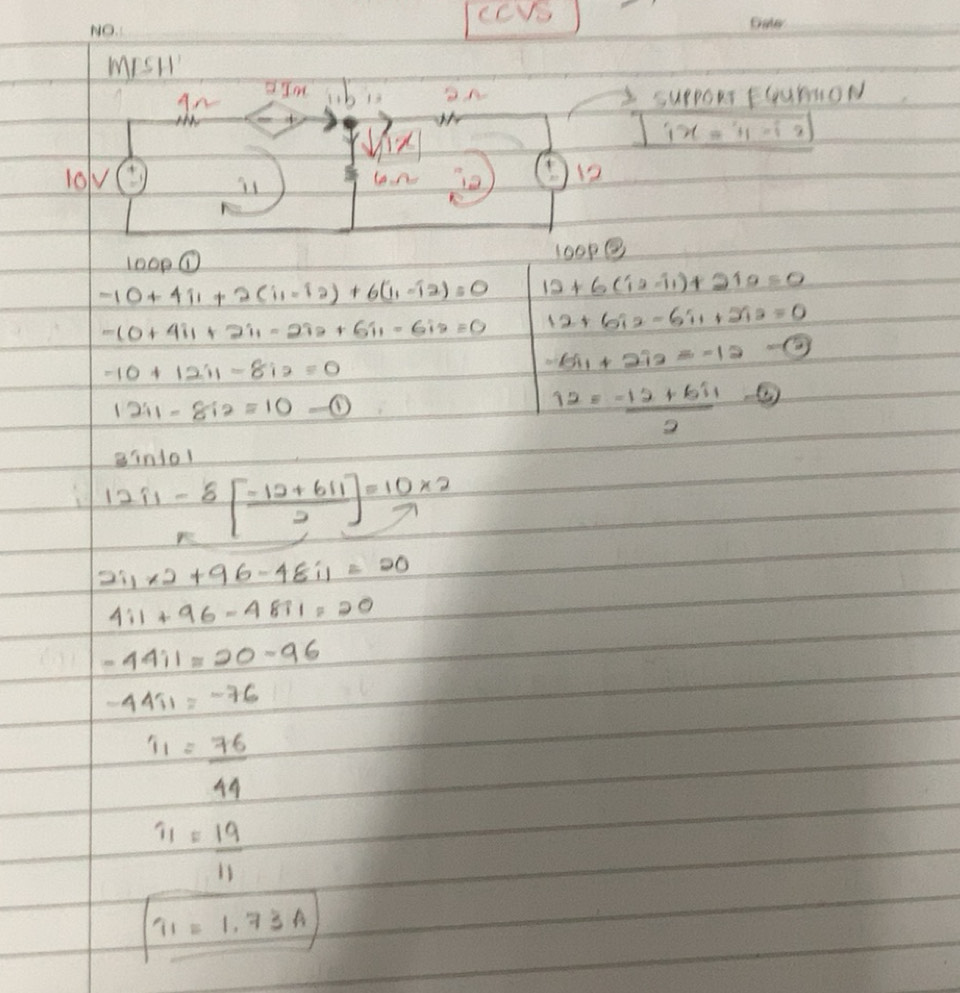 NO.:
CCVS
Date
MESH
4Ω
2Ix
i1
i2
2Ω
SUPPORT EQUATION
ix = i1 - i2
ix
10V
i1
6Ω
i2
12
loop ①
-10 + 4i1 + 2(i1 - i2) + 6(i1 - i2) = 0
-10 + 4i1 + 2i1 - 2i2 + 6i1 - 6i2 = 0
-10 + 12i1 - 8i2 = 0
12i1 - 8i2 = 10 - ①
loop ②
12 + 6(i2 - i1) + 2i2 = 0
12 + 6i2 - 6i1 + 2i2 = 0
-6i1 + 2i2 = -12 - ②
i2 = -12 + 6i1 - ③
2
3 into 1
12i1 - 8 [-12 + 6i1] = 10 × 2
2
2i1 × 2 + 96 - 48i1 = 20
4i1 + 96 - 48i1 = 20
-44i1 = 20 - 96
-44i1 = -76
i1 = 76
44
i1 = 19
11
i1 = 1.73A